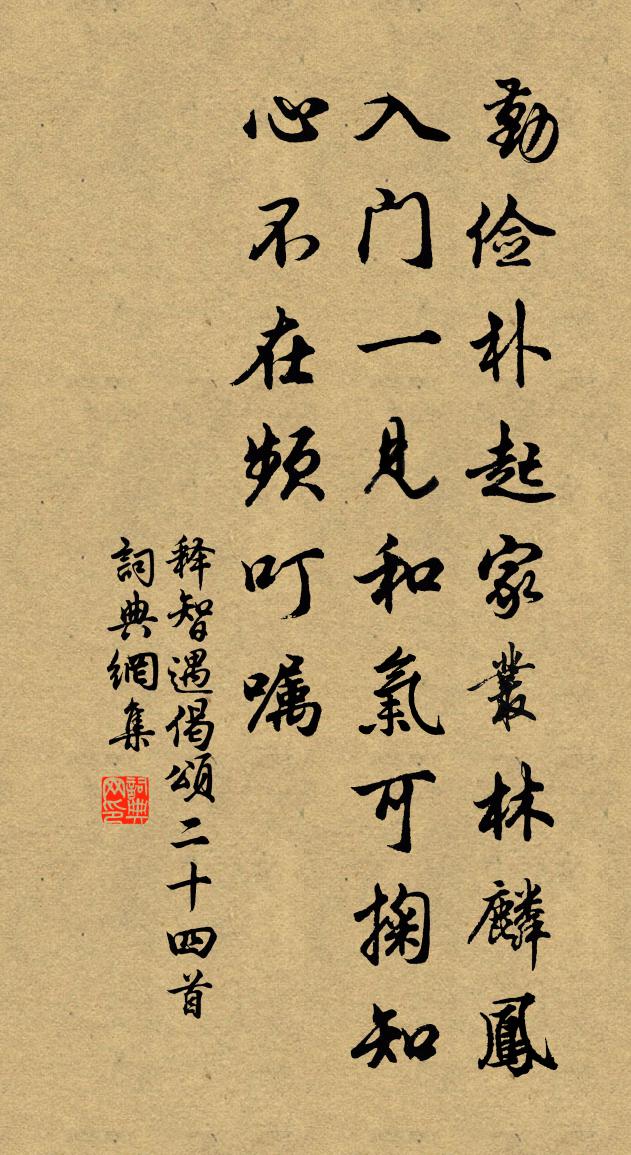 勤俭朴起家叢林麟鳳
入门一見和氣可掬知
心不在频叮嘱
释智遇偈頌二十四首
詞典網集
詞典网印